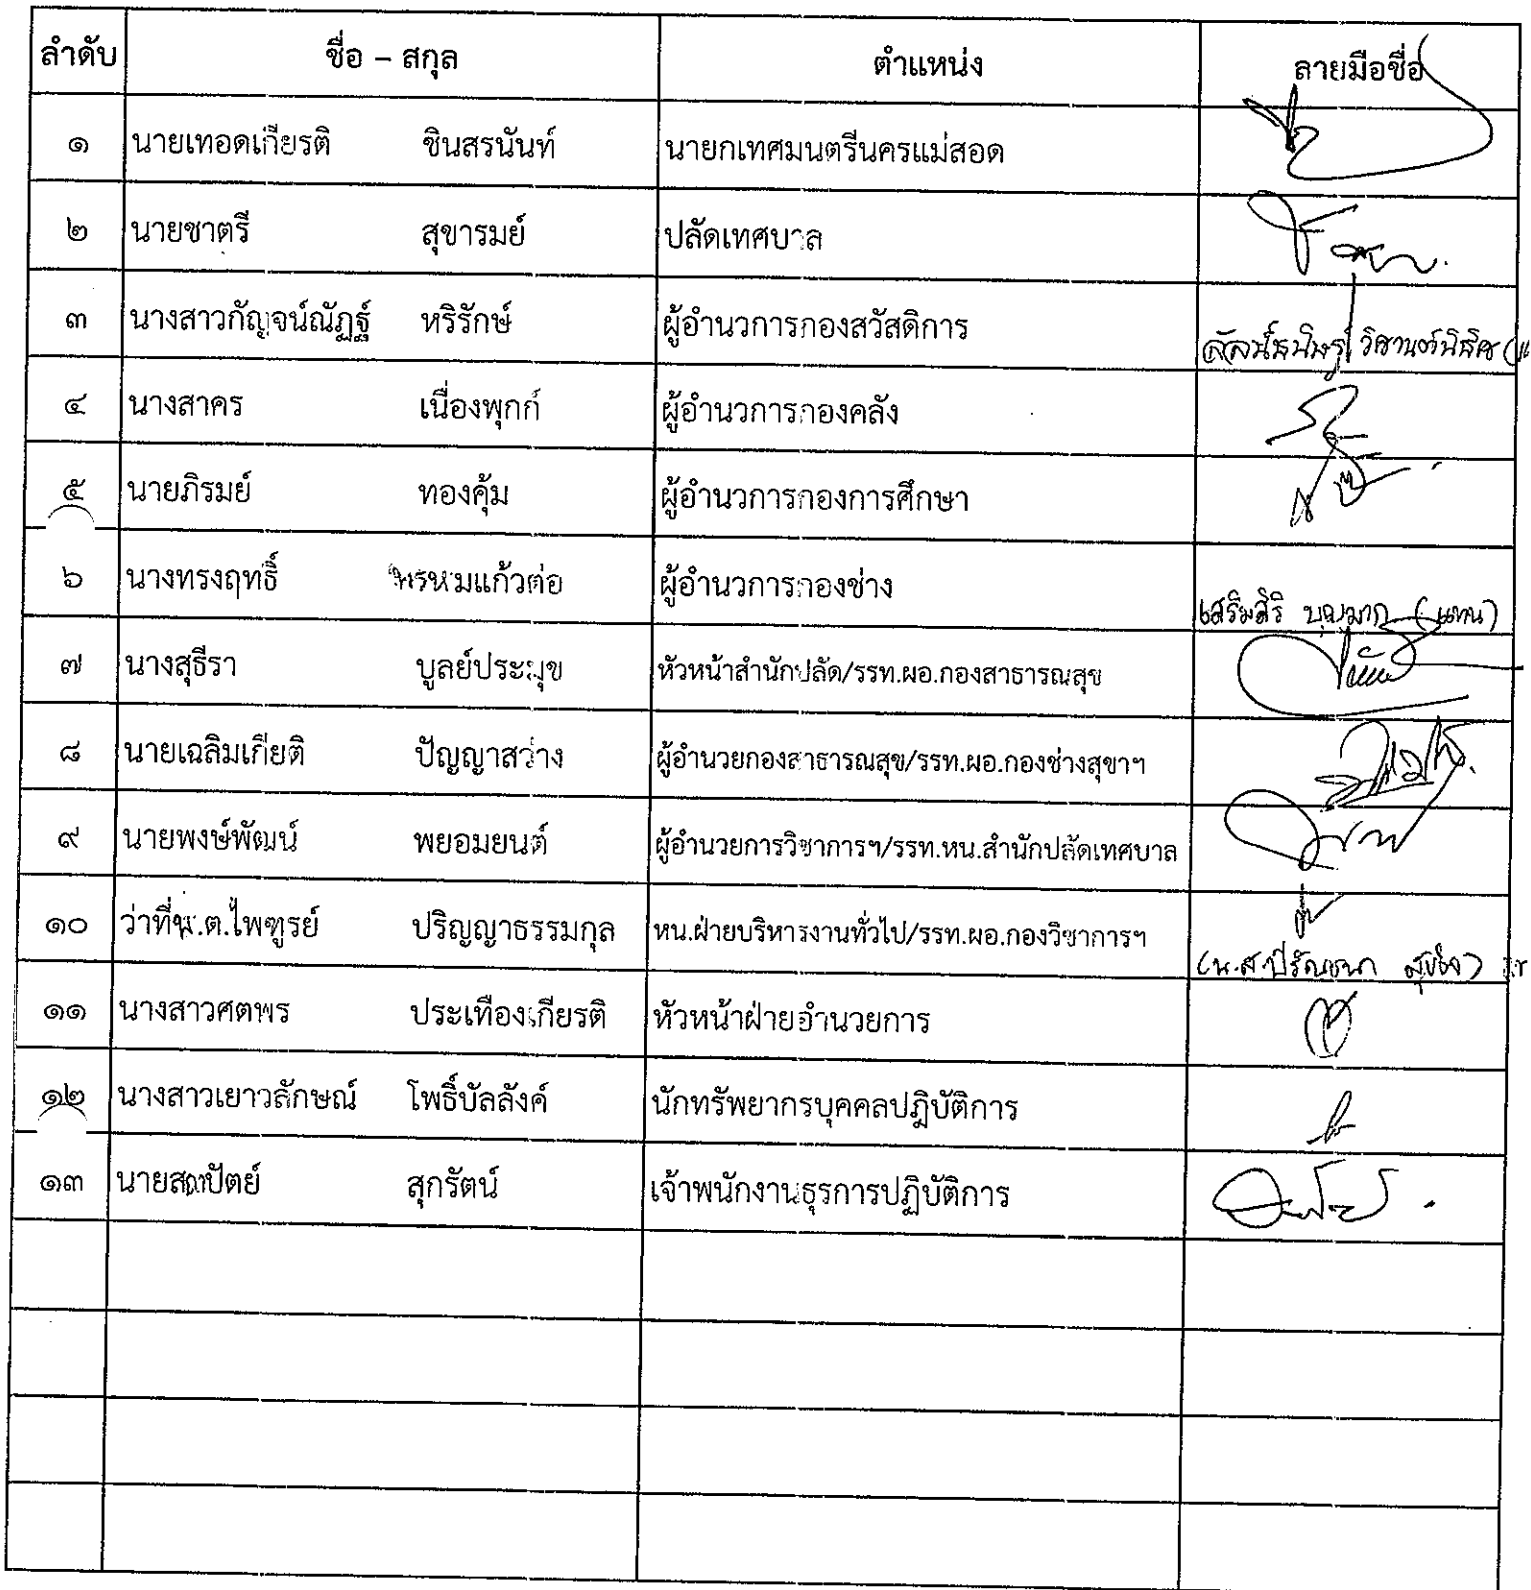 ลำดับ ชื่อ – สกุล ตำแหน่ง ลายมือชื่อ
๑ นายเทอดเกียรติ ชินสรนันท์ นายกเทศมนตรีนครแม่สอด
๒ นายชาตรี สุขารมย์ ปลัดเทศบาล
๓ นางสาวกัญจน์ณัฏฐ์ หริรักษ์ ผู้อำนวการกองสวัสดิการ
๔ นางสาคร เนื่องพุกก์ ผู้อำนวการกองคลัง
๕ นายภิรมย์ ทองคุ้ม ผู้อำนวการกองการศึกษา
๖ นางทรงฤทธิ์ พรหมแก้วต่อ ผู้อำนวการกองช่าง เสริมสิริ บุญมาก (แทน)
๗ นางสุธีรา บูลย์ประมุข หัวหน้าสำนักปลัด/รรท.ผอ.กองสาธารณสุข
๘ นายเฉลิมเกียติ ปัญญาสว่าง ผู้อำนวยกองสาธารณสุข/รรท.ผอ.กองช่างสุขาฯ
๙ นายพงษ์พัฒน์ พยอมยนต์ ผู้อำนวยการวิชาการฯ/รรท.หน.สำนักปลัดเทศบาล
๑๐ ว่าที่พ.ต.ไพฑูรย์ ปริญญาธรรมกุล หน.ฝ่ายบริหารงานทั่วไป/รรท.ผอ.กองวิชาการฯ (น.ส.
๑๑ นางสาวศตพร ประเทืองเกียรติ หัวหน้าฝ่ายอำนวยการ
๑๒ นางสาวเยาวลักษณ์ โพธิ์บัลลังค์ นักทรัพยากรบุคคลปฏิบัติการ
๑๓ นายสถาปัตย์ สุกรัตน์ เจ้าพนักงานธุรการปฏิบัติการ